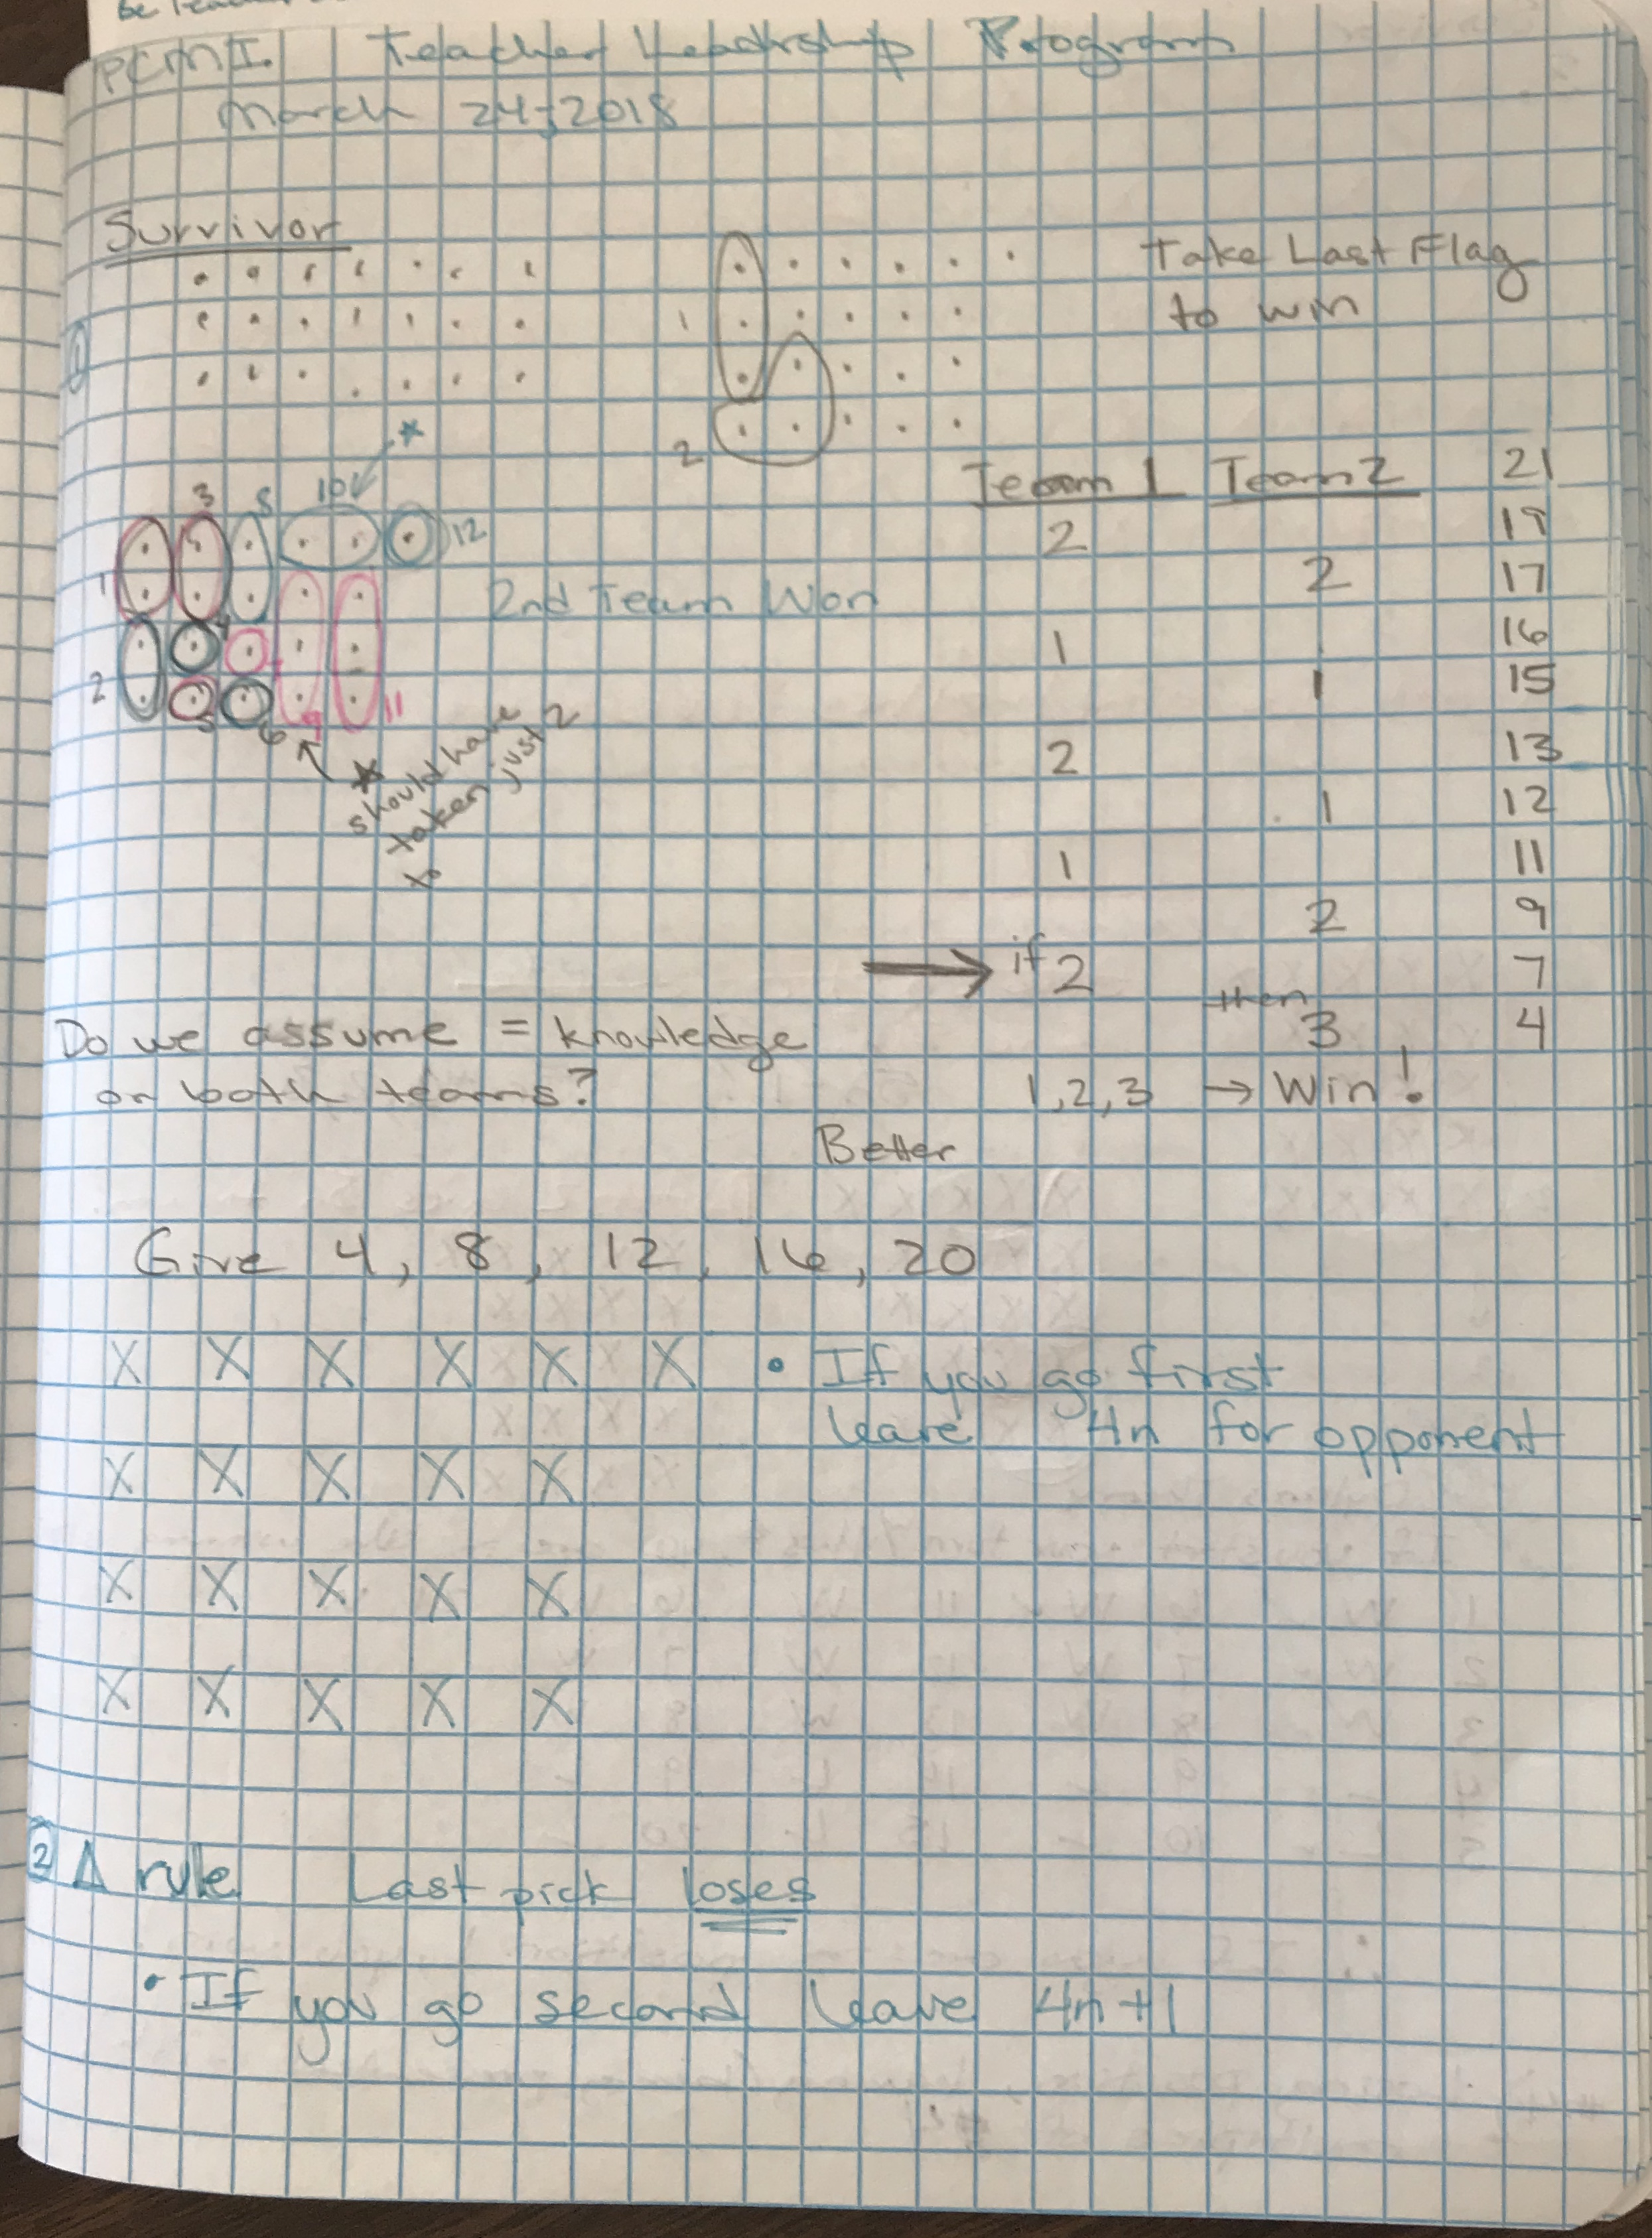 PCMI Teacher Leadership Program
March 24, 2018
Survivor
Take Last Flag
to win
1
1
2
3
8
10
12
1
4
2
5
6
7
9
11
2nd Team Won
should have
taken just 2
Team 1 Team 2 21
2 19
2 17
1 16
1 15
2 13
1 12
1 11
2 9
if 2 7
then 3 4
1,2,3 → Win!
Do we assume = knowledge
on both teams?
Better
Give 4, 8, 12, 16, 20
X X X X X X
• If you go first
leave 4n for opponent
X X X X X
X X X X X
X X X X X
2 Δ rule Last pick loses
• If you go second leave 4n+1